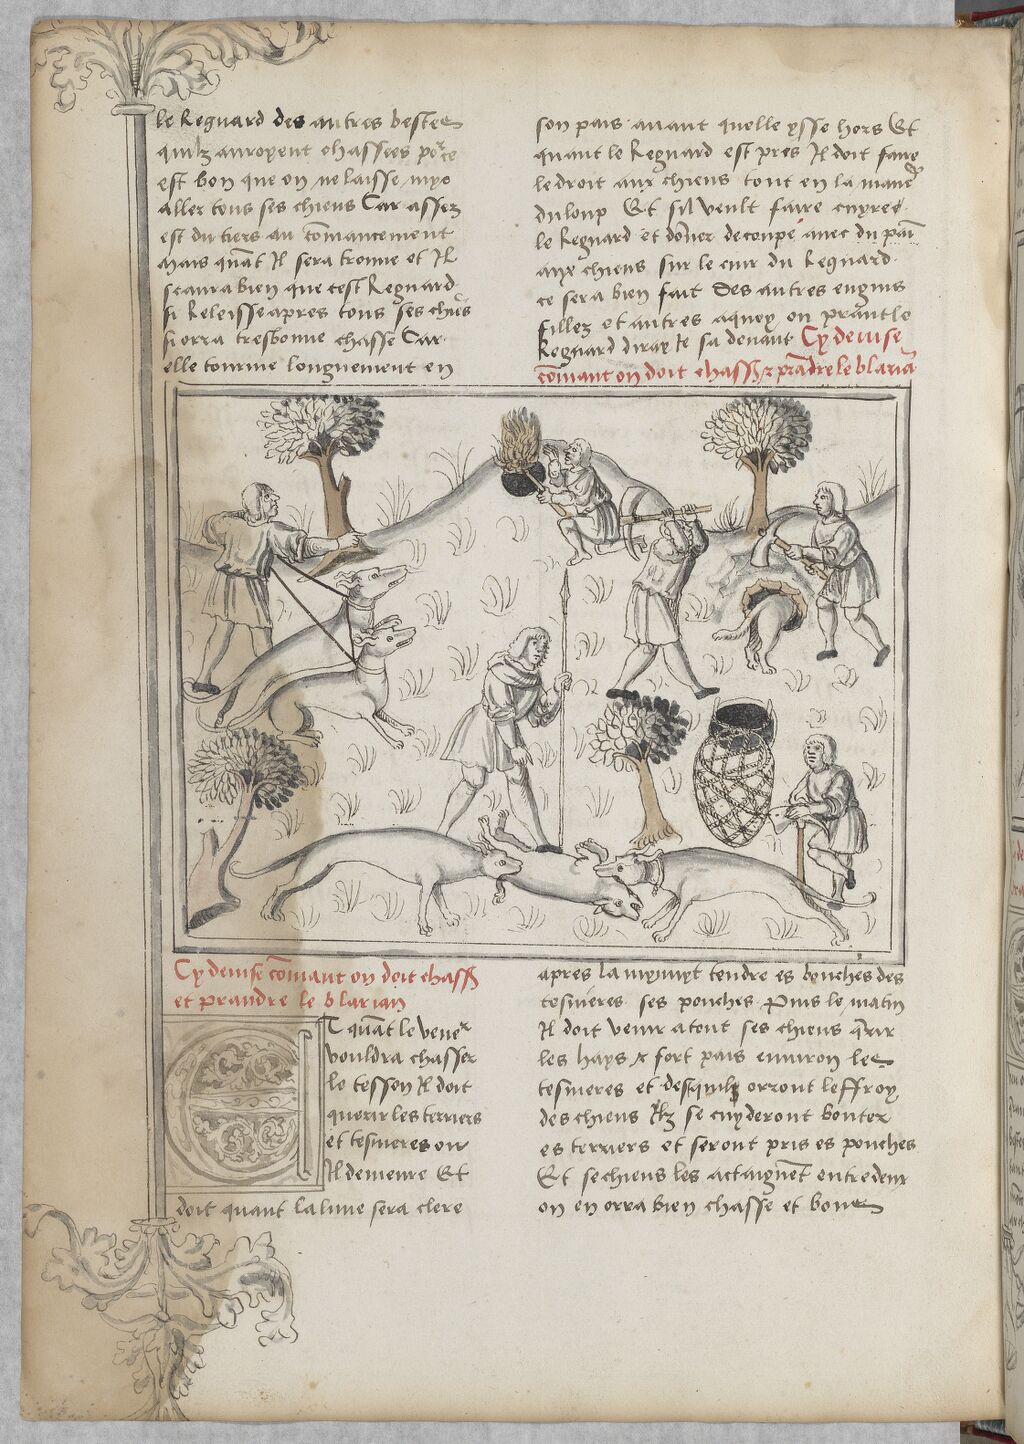 le Regnard des autres bestes
quilz auroyent chassees po͛ ce
est bon que on ne laisse myo
aller tous ses chiens Car assez
est du tiers au cōmancement
Mais quāt Il sera trouue et Il
scaura bien que cest Regnard
si Releisse apres tous ses chiēs
si orra tresbonne chasse Car
elle tourne longuement en
son pais auant quelle ysse hors Et
quant le Regnard est pres Il doit faire
le droit aux chiens tout en la manē
du loup Et sil veult faire cuyree
le Regnard et dōner decoupe auec du pain
aux chiens sur le cuir du Regnard
ce sera bien fait Des autres engins
fillez et autres aquoy on prant le
Regnard diray Ie sa deuant Cy deuise
cōmant on doit chasser et prādre le blariā
Cy deuise cōmant on doit chass̄
et prandre le blarian
ET quāt le vener
vouldra chasser
le tesson Il doit
querir les terriers
et tesnieres ou
Il demeure Et
doit quant la lune sera clere
apres la mynuyt tendre es bouches des
tesnieres ses pouches Puis le matin
Il doit venir atout ses chiens q̄rir
les hays et fort pais enuiron les
tesnieres et desquilz orront leffroy
des chiens Ilz se cuyderont bouter
es terriers et seront pris es pouches
Et se chiens les actaignēt entredeux
on en orra bien chasse et bons